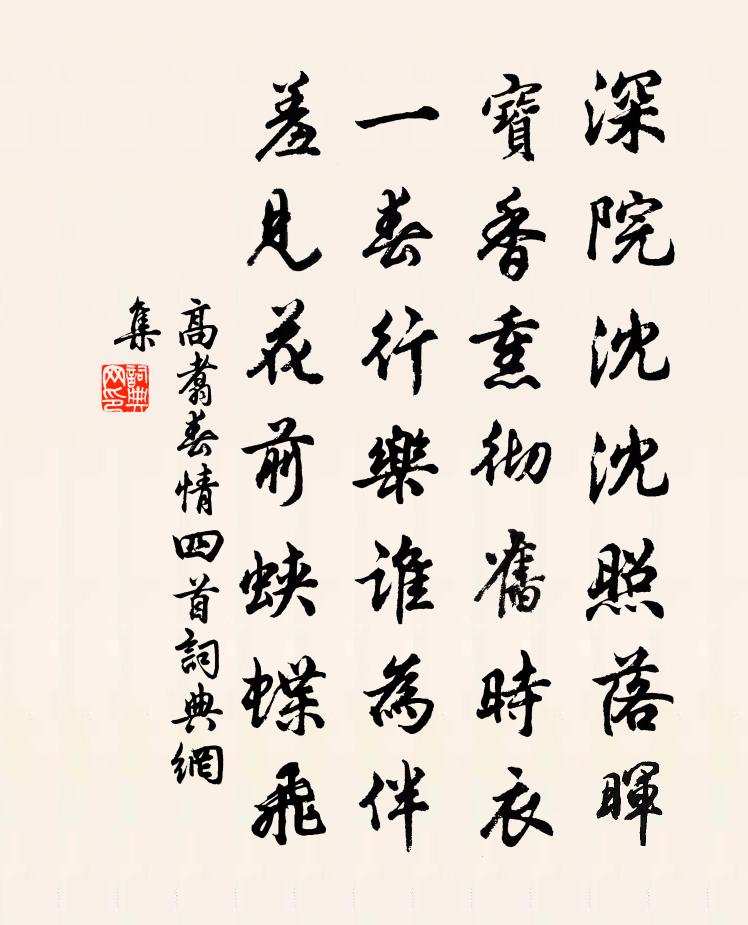 深院沈沈照落暉
寶香熏彻舊時衣
一春行樂誰為伴
羞見花前蛺蝶飛
高翥春情四首詞典網
集
詞典
网印